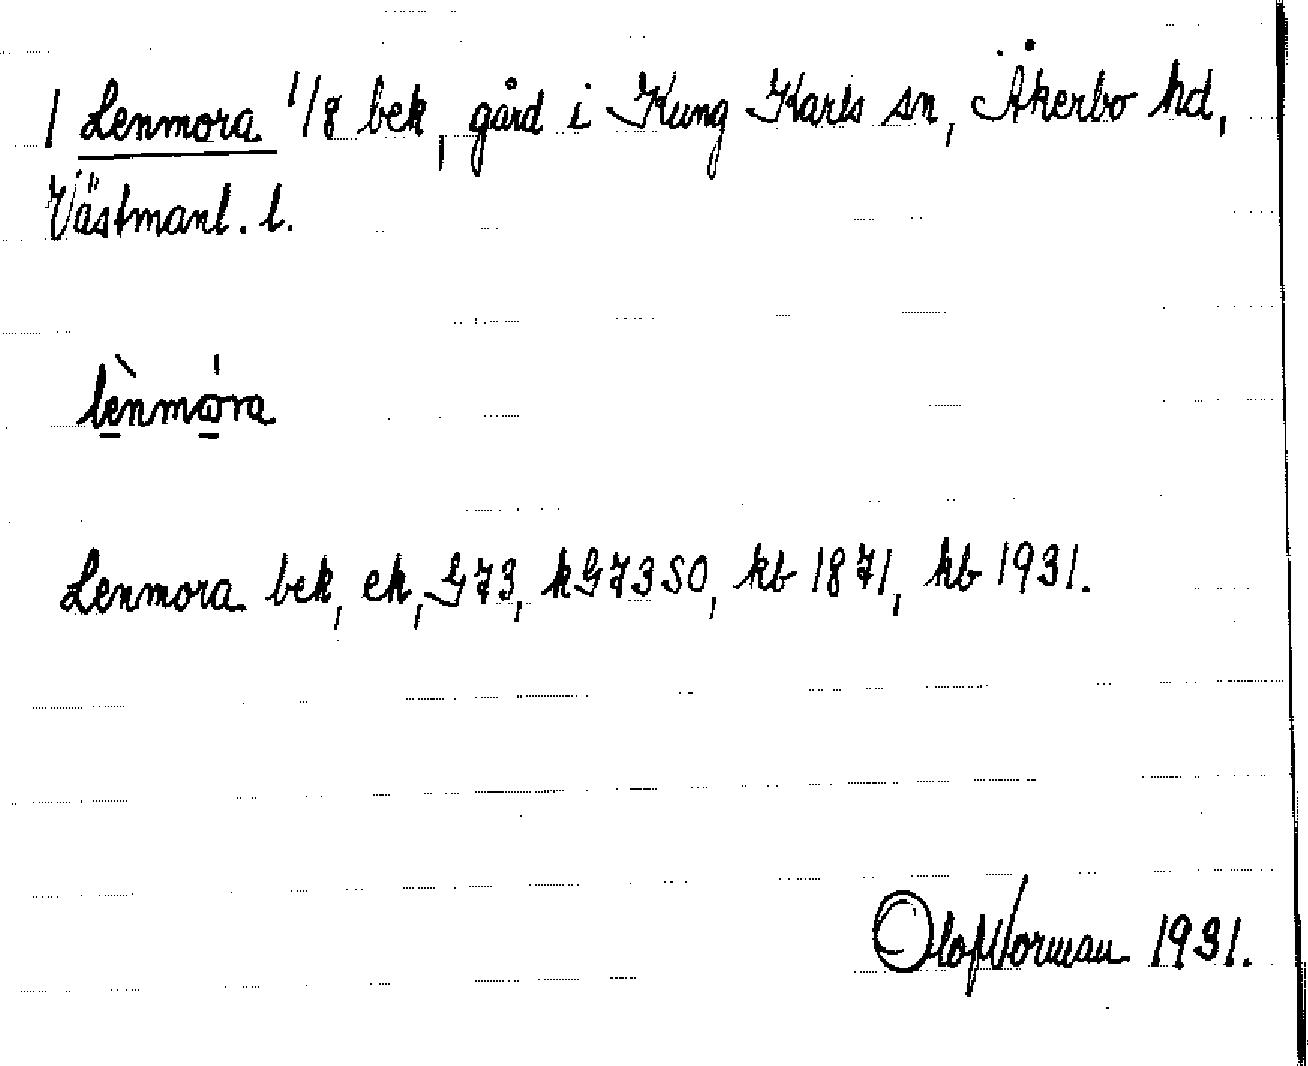 1 Lenmora 1/8 bek, gård i Kung Karls sn, Åkerbo hd,
Västmanl. l.
lènmóra
Lenmora bek, ek, G73, kG73SO, kb 1871, hb 1931.
Olof Vorman 1931.